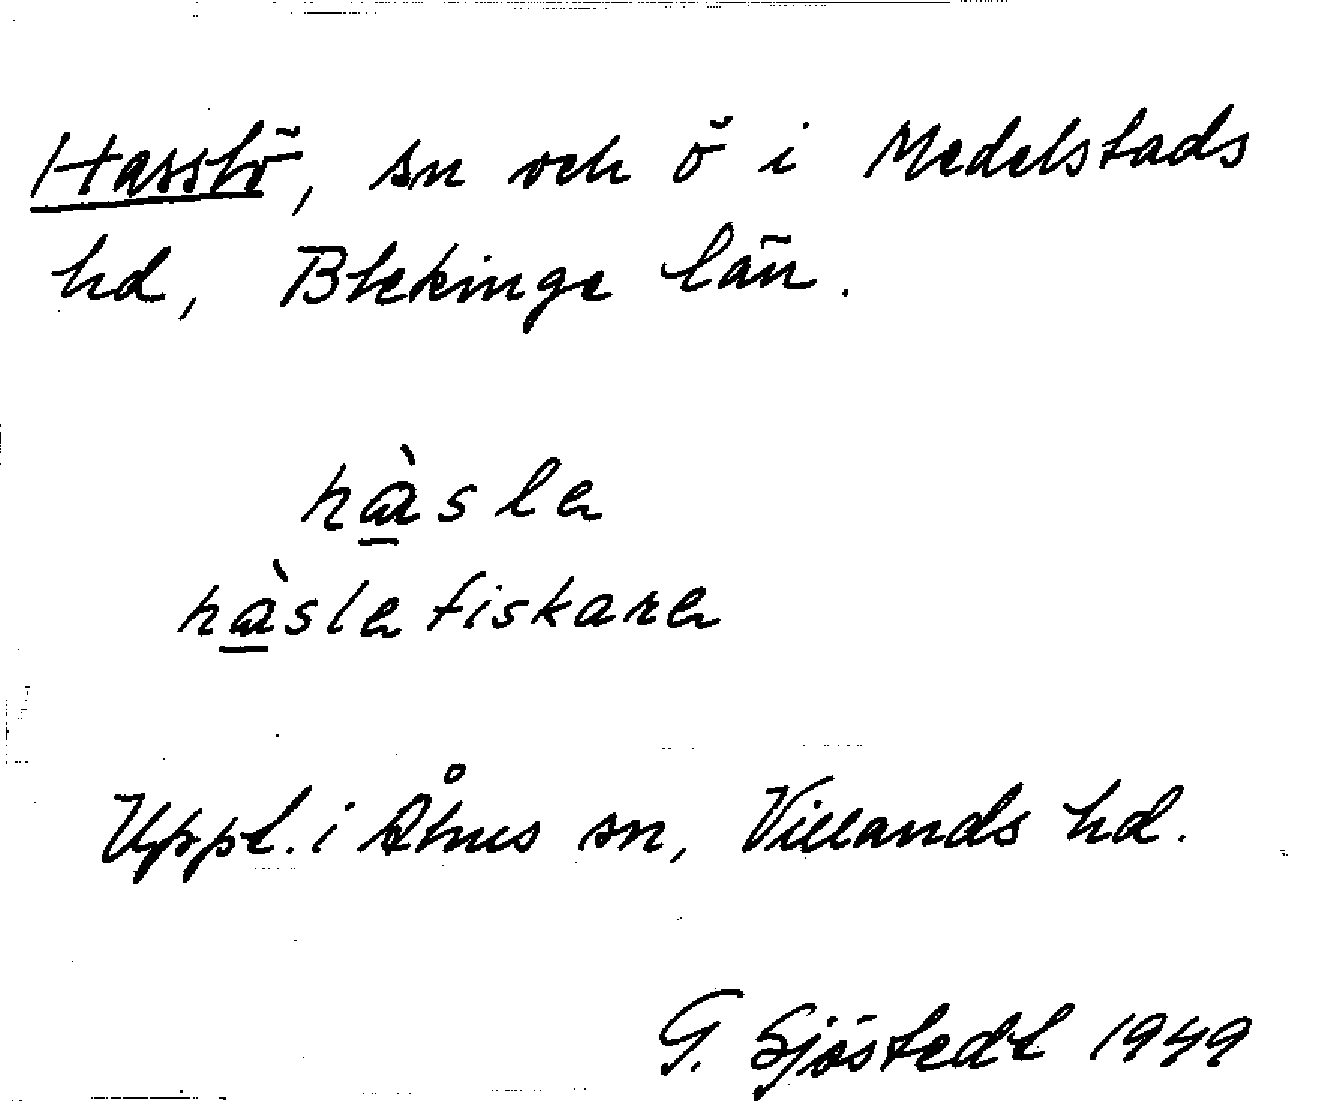 Hasslö, sn och ö i Medelstads
hd, Blekinge län.
hàsle
hàslefiskare
Uppt. i Åhus sn, Villands hd.
G. Sjöstedt 1949